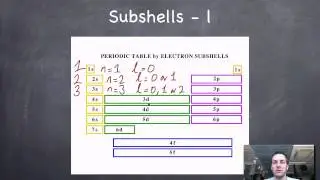 Subshells - l
PERIODIC TABLE by ELECTRON SUBSHELLS
1 1s n=1 l=0 1s
2 2s n=2 l=0 or 1 2p
3 3s n=3 l=0,1 or 2 3p
4s 3d 4p
5s 4d 5p
6s 5d 6p
7s 6d
4f
5f